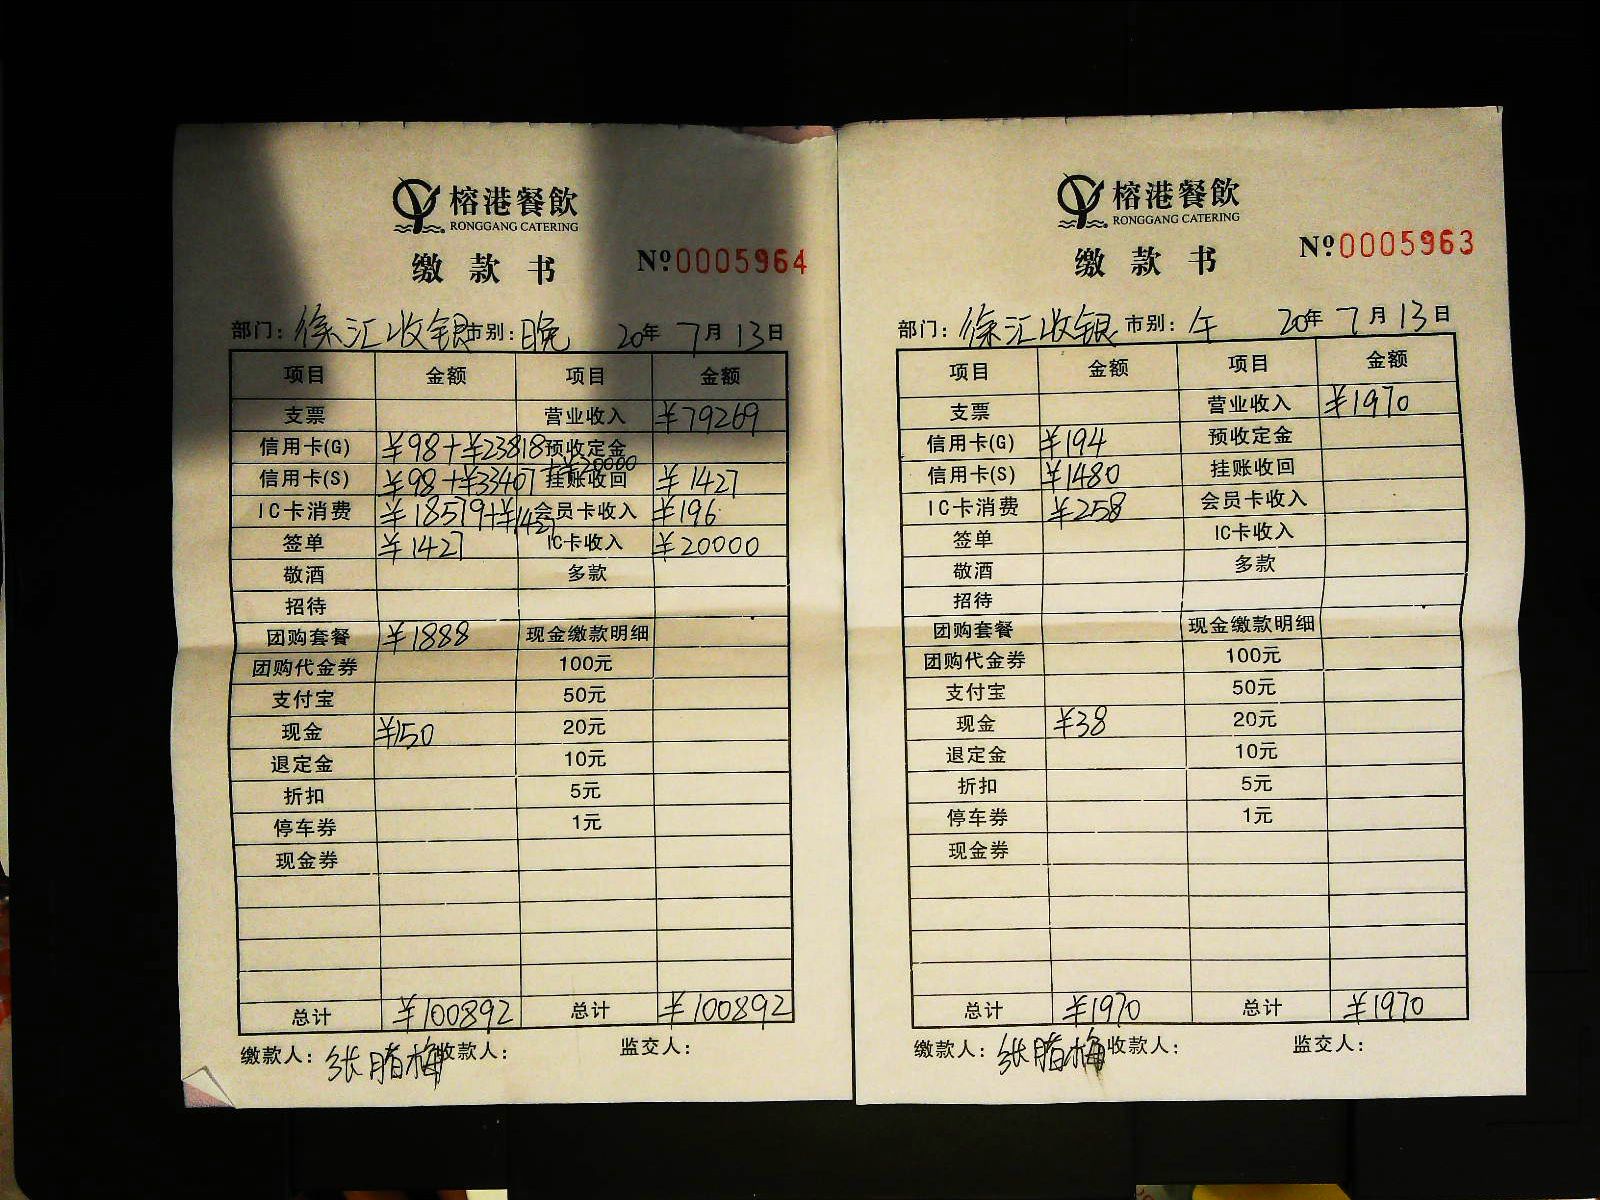 榕港餐飲
RONGGANG CATERING
缴款书
№0005964
部门: 徐汇收银 市别: 晚 20年 7月 13日
项目 金额 项目 金额
支票 营业收入 ¥79269
信用卡(G) ¥98+¥23818 预收定金
信用卡(S) ¥98+¥33407+¥20000 挂账收回 ¥1427
IC卡消费 ¥18579+¥1427 会员卡收入 ¥196
签单 ¥1427 IC卡收入 ¥20000
敬酒 多款
招待
团购套餐 ¥1888 现金缴款明细
团购代金券 100元
支付宝 50元
现金 ¥150 20元
退定金 10元
折扣 5元
停车券 1元
现金券
总计 ¥100892 总计 ¥100892
缴款人: 张腊梅 收款人: 监交人:
榕港餐飲
RONGGANG CATERING
缴款书
№0005963
部门: 徐汇收银 市别: 午 20年 7月 13日
项目 金额 项目 金额
支票 营业收入 ¥1970
信用卡(G) ¥194 预收定金
信用卡(S) ¥1480 挂账收回
IC卡消费 ¥258 会员卡收入
签单 IC卡收入
敬酒 多款
招待
团购套餐 现金缴款明细
团购代金券 100元
支付宝 50元
现金 ¥38 20元
退定金 10元
折扣 5元
停车券 1元
现金券
总计 ¥1970 总计 ¥1970
缴款人: 张腊梅 收款人: 监交人: